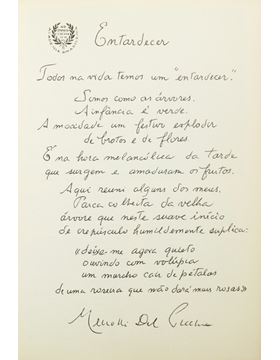 Entardecer
Todos na vida temos um "entardecer".
Somos como as árvores.
A infância é verde.
A mocidade um festivo explodir
de brotos e de flores.
E na hora melancólica da tarde
que surgem e amaduram os frutos.
Aqui reuni alguns dos meus.
Parca colheita da velha
árvore que neste suave início
de crepúsculo humildemente suplica:
"deixe-me agora quieto
ouvindo com volúpia
um murcho cair de pétalas
de uma roseira que não dará mais rosas"
Menotti Del Picchia